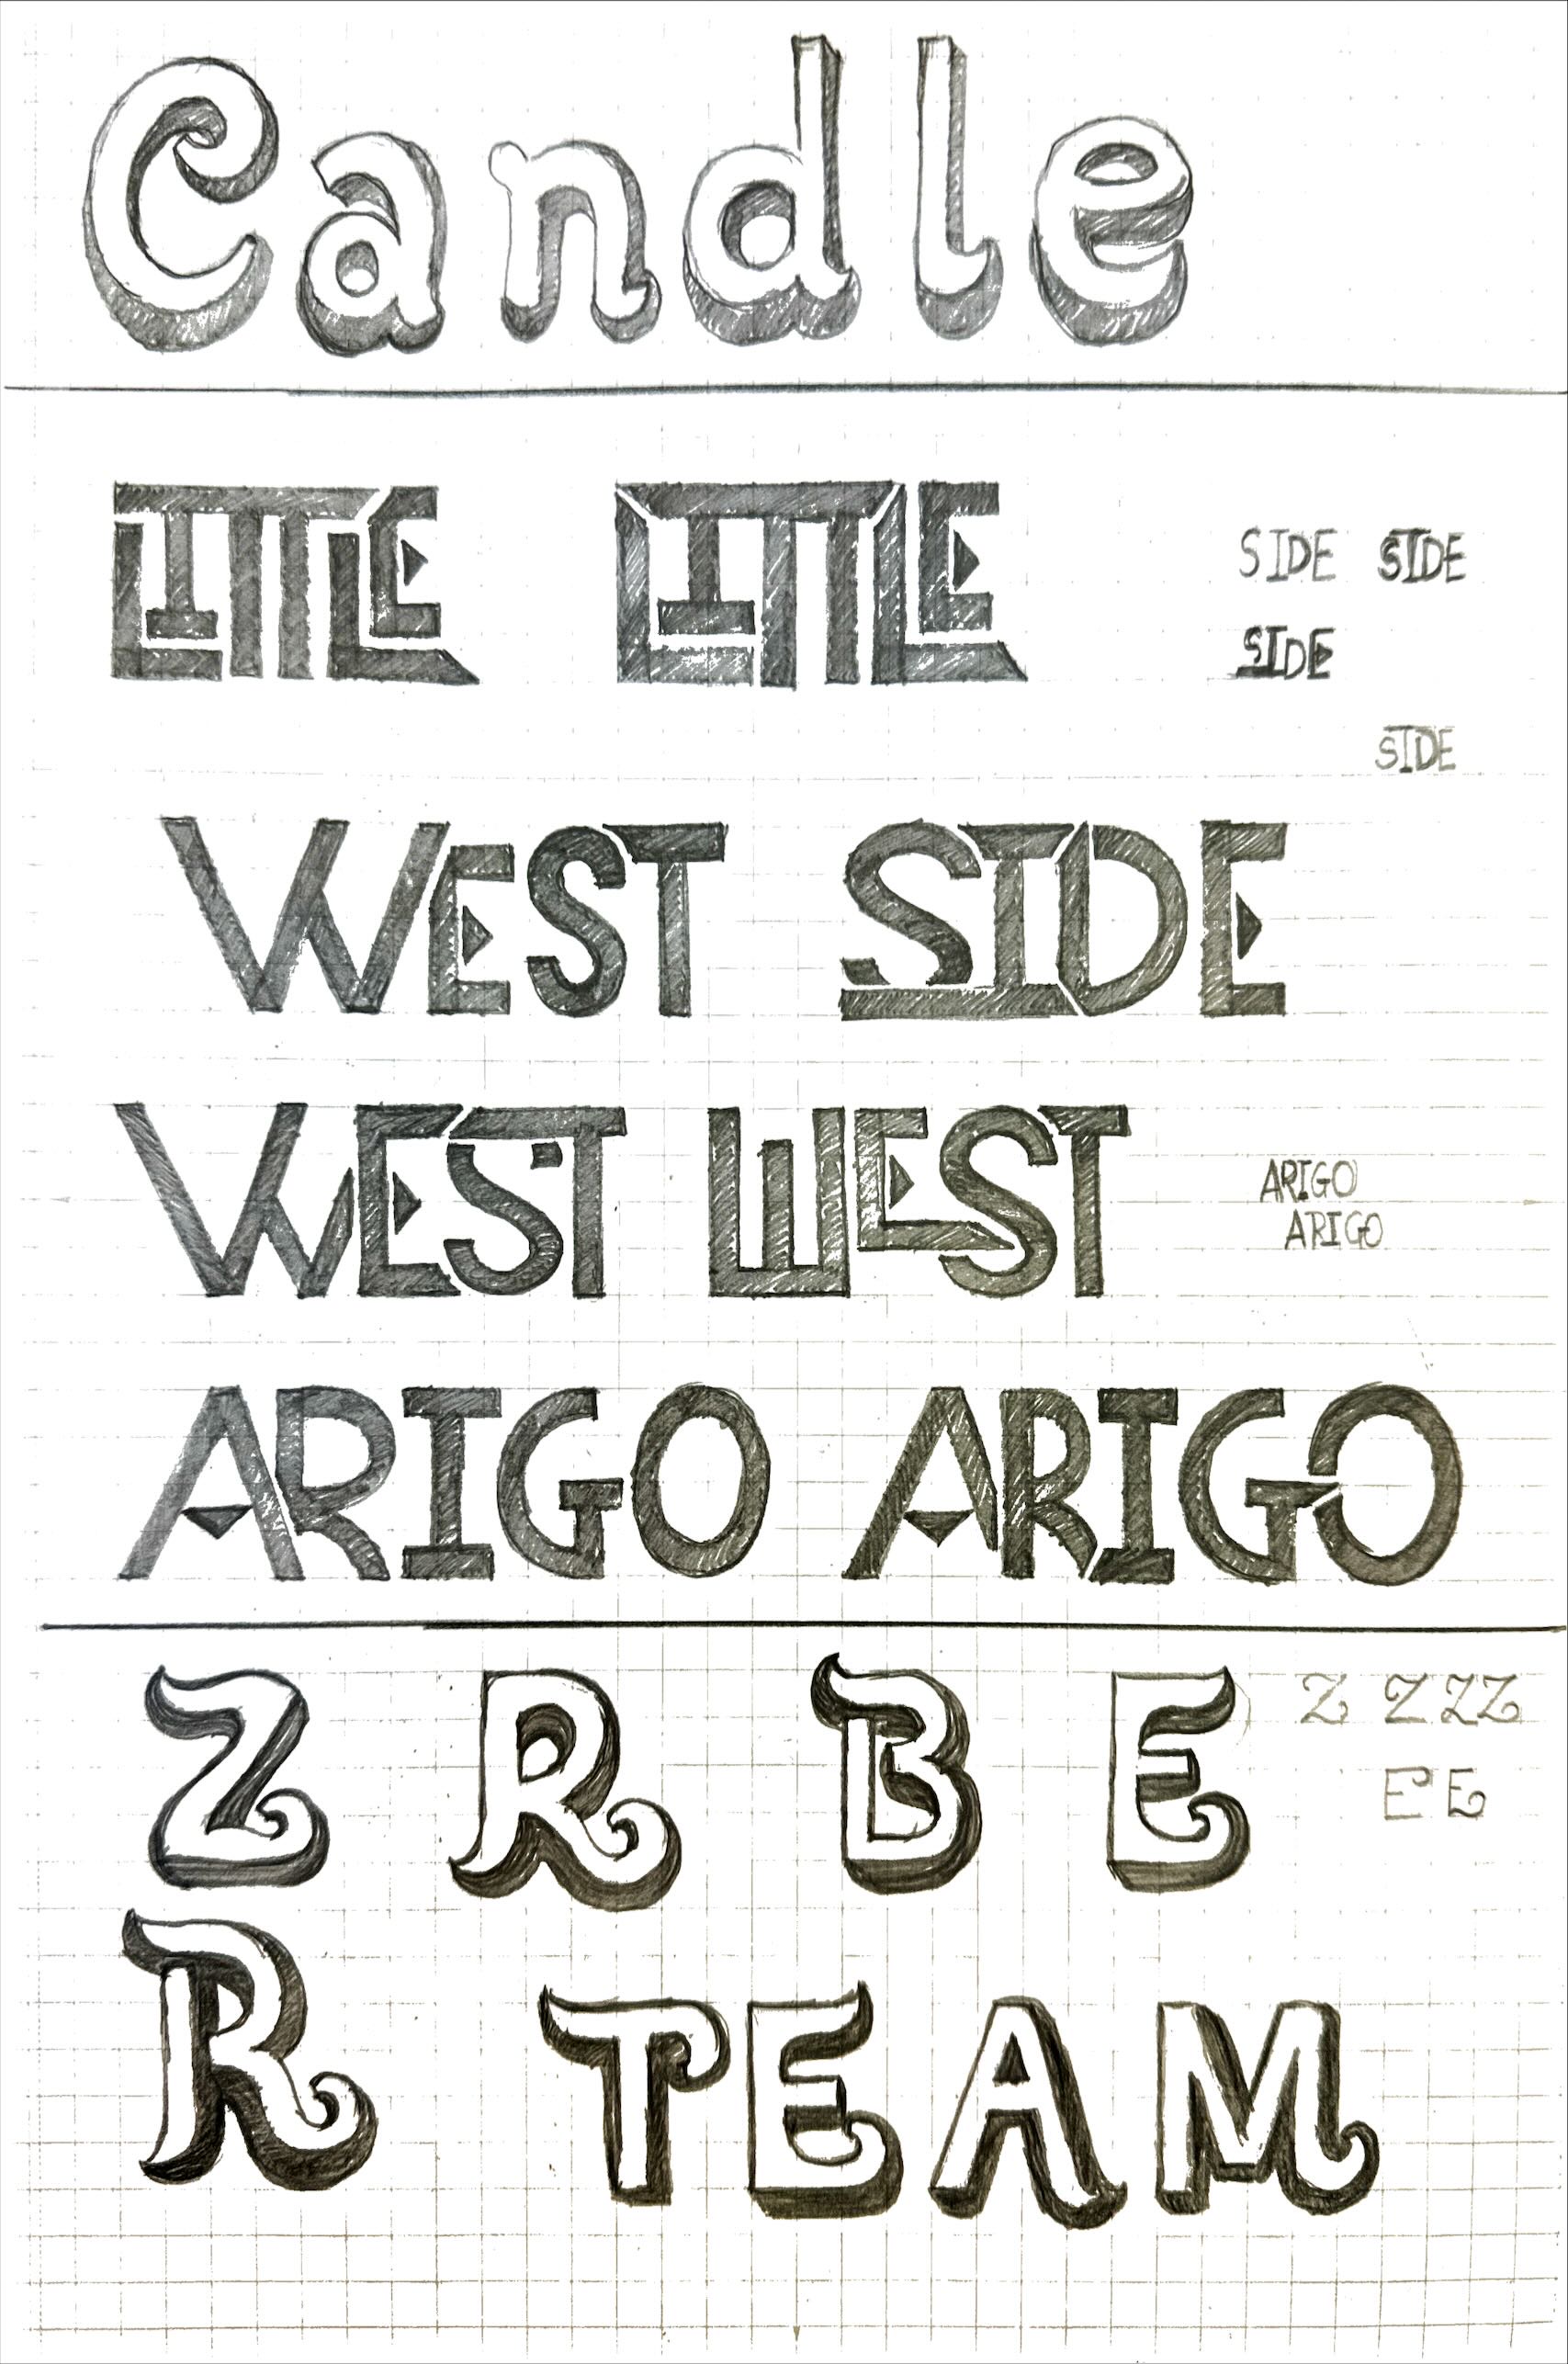 Candle
LITTLE LITTLE
SIDE SIDE
SIDE
SIDE
WEST SIDE
WEST WEST
ARIGO
ARIGO
ARIGO ARIGO
Z R B E
Z Z Z Z
E E
R TEAM